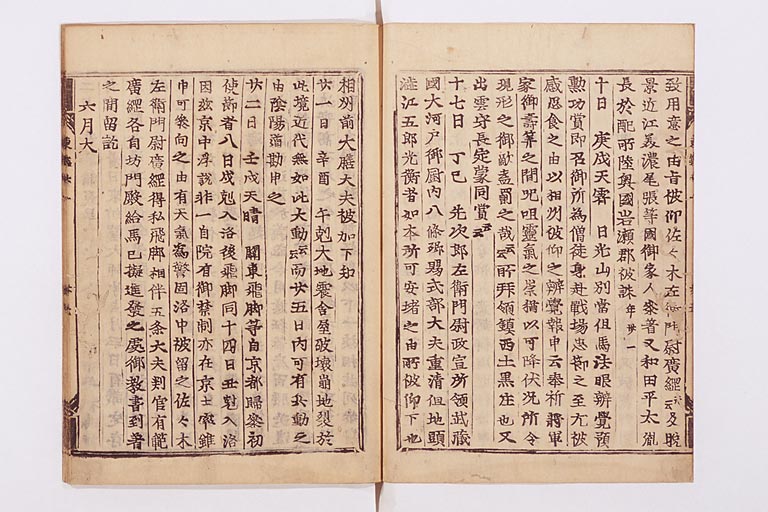 致用意之由皆被仰佐々木左衛門尉廣經云云及晩
景近江美濃尾張等國御家人參著又和田平太胤
長於配所陸奥國岩瀬郡被誅年卅一
十日 庚戌天霽 日光山別當但馬法眼辨覺預
勲功賞即召御所為僧徒身赴戰場忠節之至尤被
感思食之由以相州被仰之辨覺報申云奉祈將軍
家御壽算之間呪咀靈氣之崇攝以可降伏况所令
現形之御敵盍罰之哉云云所拜領鎮西土黒庄也又
出雲守長定蒙同賞云云
十七日 丁巳 先次郎左衛門尉政宣所領武藏
國大河戸御厨内八條郷賜式部大夫重清但地頭
澁江五郎光衡者如本所可安堵之由所被仰下也
相州前大膳大夫被加下知
廿一日 辛酉 午剋大地震舎屋破壞崩地裂於
此境近代無如此大動云云而廿五日内可有兵動之
由陰陽道勘申之
廿二日 壬戌天晴 關東飛脚等自京都歸參初
使節者八日戌剋入洛後飛脚同十四日丑剋入洛
因玆京中浮説非一自院有御禁制亦在京士卒雖
巾可參向之由有天氣為警固洛中被留之佐々木
左衛門尉廣經得私飛脚相伴五条大夫判官有範
廣經各自坊門殿給馬已擬進發之處御教書到着
之間留訖
六月大